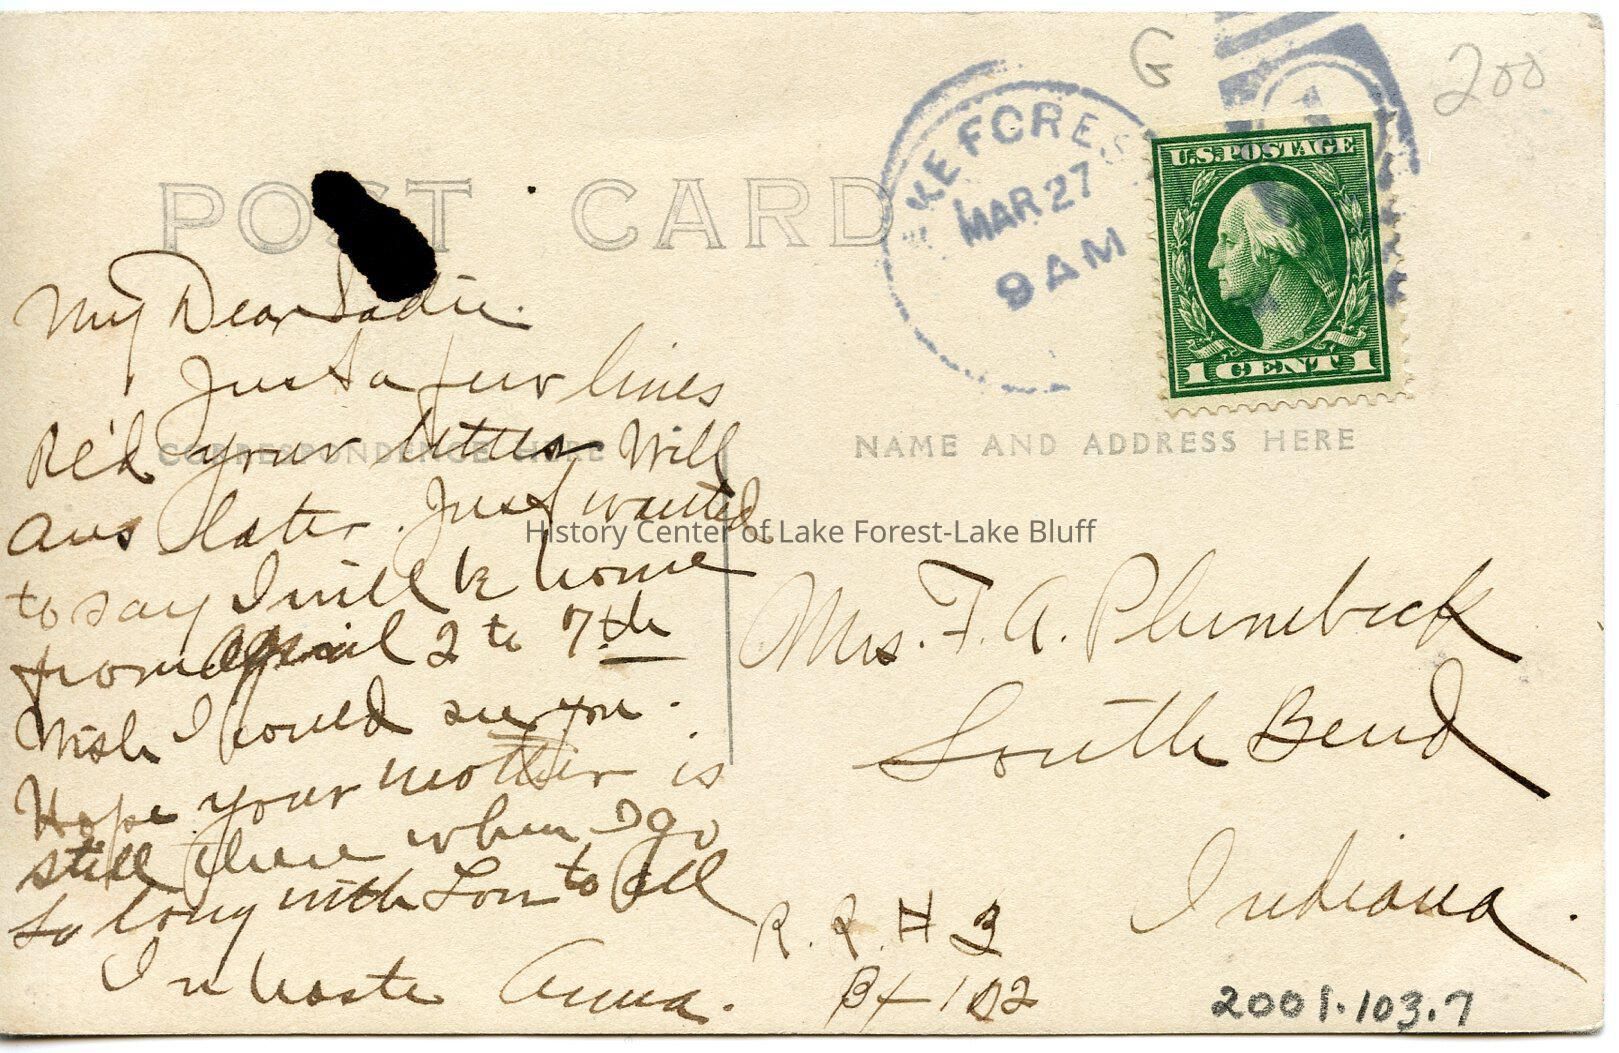 G
200
POST CARD
LAKE FOREST
MAR 27
9 AM
U.S. POSTAGE
1 CENT 1
CORRESPONDENCE HERE
NAME AND ADDRESS HERE
My Dear Sadie.
Just a few lines
Re'd your letter Will
ans later. Just wanted
to say I will be home
from April 2 to 7th
Wish I could see you.
Hope your mother is
still there when I go
So long with Lov to all
In haste Anna.
History Center of Lake Forest-Lake Bluff
Mrs. F. A. Plumbeck
South Bend
Indiana.
R. R. # 3
Bx 102
2001.103.7